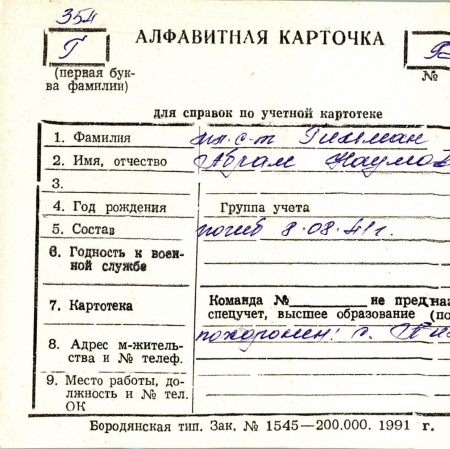 354
Г
АЛФАВИТНАЯ КАРТОЧКА
(первая бук-
ва фамилии)
№
для справок по учетной картотеке
1. Фамилия
мл. с-т Гильман
2. Имя, отчество
Абрам Наумов
3.
4. Год рождения
Группа учета
5. Состав
погиб 8.08.41г.
6. Годность к воен-
ной службе
7. Картотека
Команда №__________ не предназ
спецучет, высшее образование (по
8. Адрес м-житель-
ства и № телеф.
похоронен: г.
9. Место работы, до-
лжность и № тел.
ОК
Бородянская тип. Зак. № 1545—200.000. 1991 г.